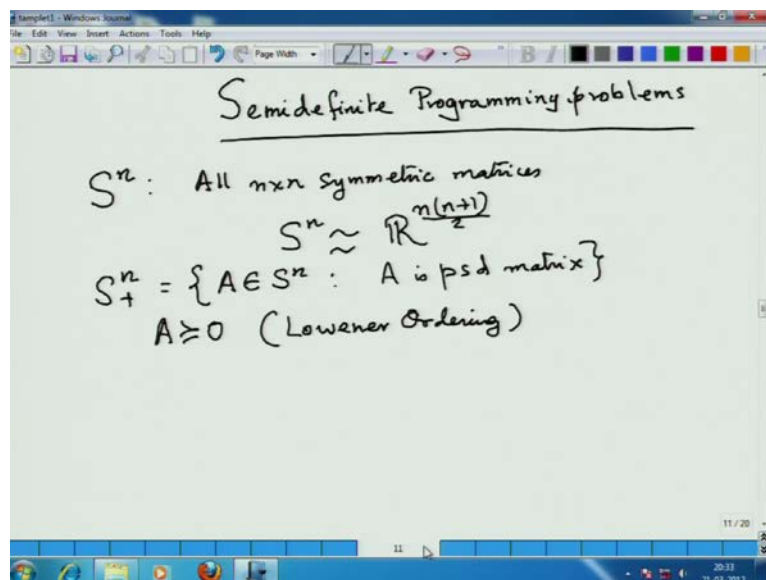 tamplet1 - Windows Journal
File Edit View Insert Actions Tools Help
Page Width
Semidefinite Programming problems
Sⁿ : All n×n symmetric matrices
Sⁿ ≈ ℝ^{n(n+1)/2}
S₊ⁿ = { A ∈ Sⁿ : A is psd matrix }
A ≽ 0 (Lowener Ordering)
11 / 20
11
20:33
21-03-2012